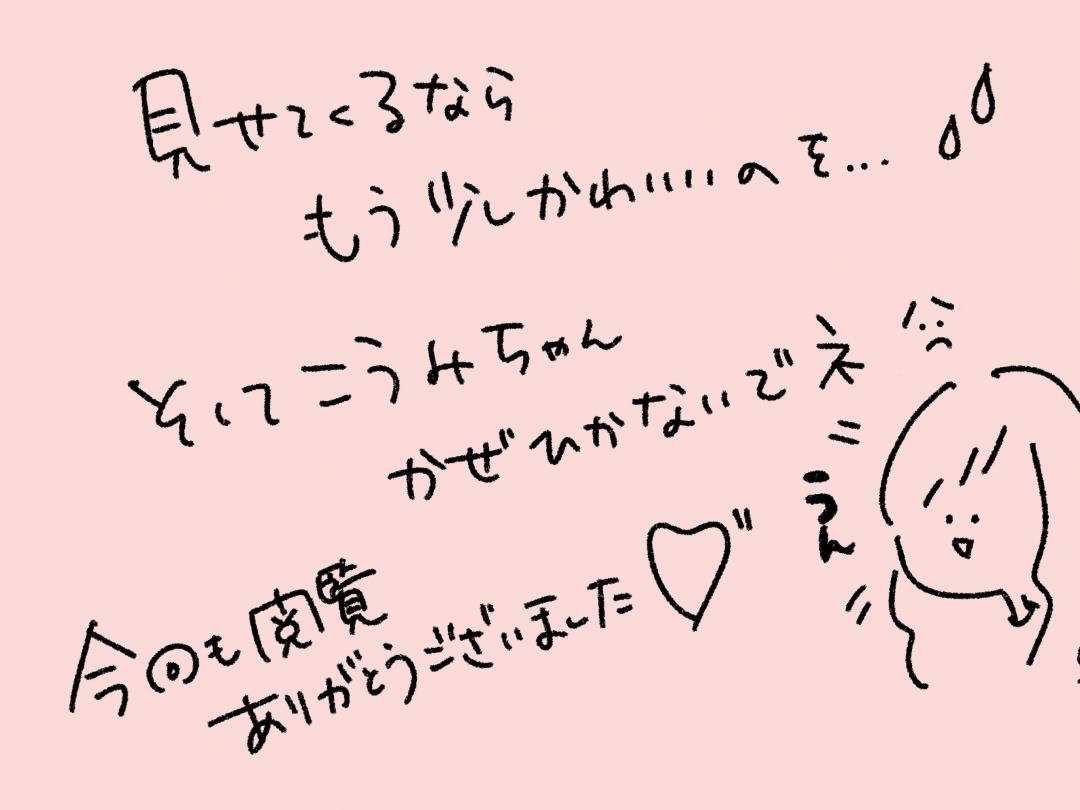 見せてくるなら
もう少しかわいいのを...
そしてこうみちゃん
かぜひかないでネ
うん
今回も閲覧
ありがとうございました